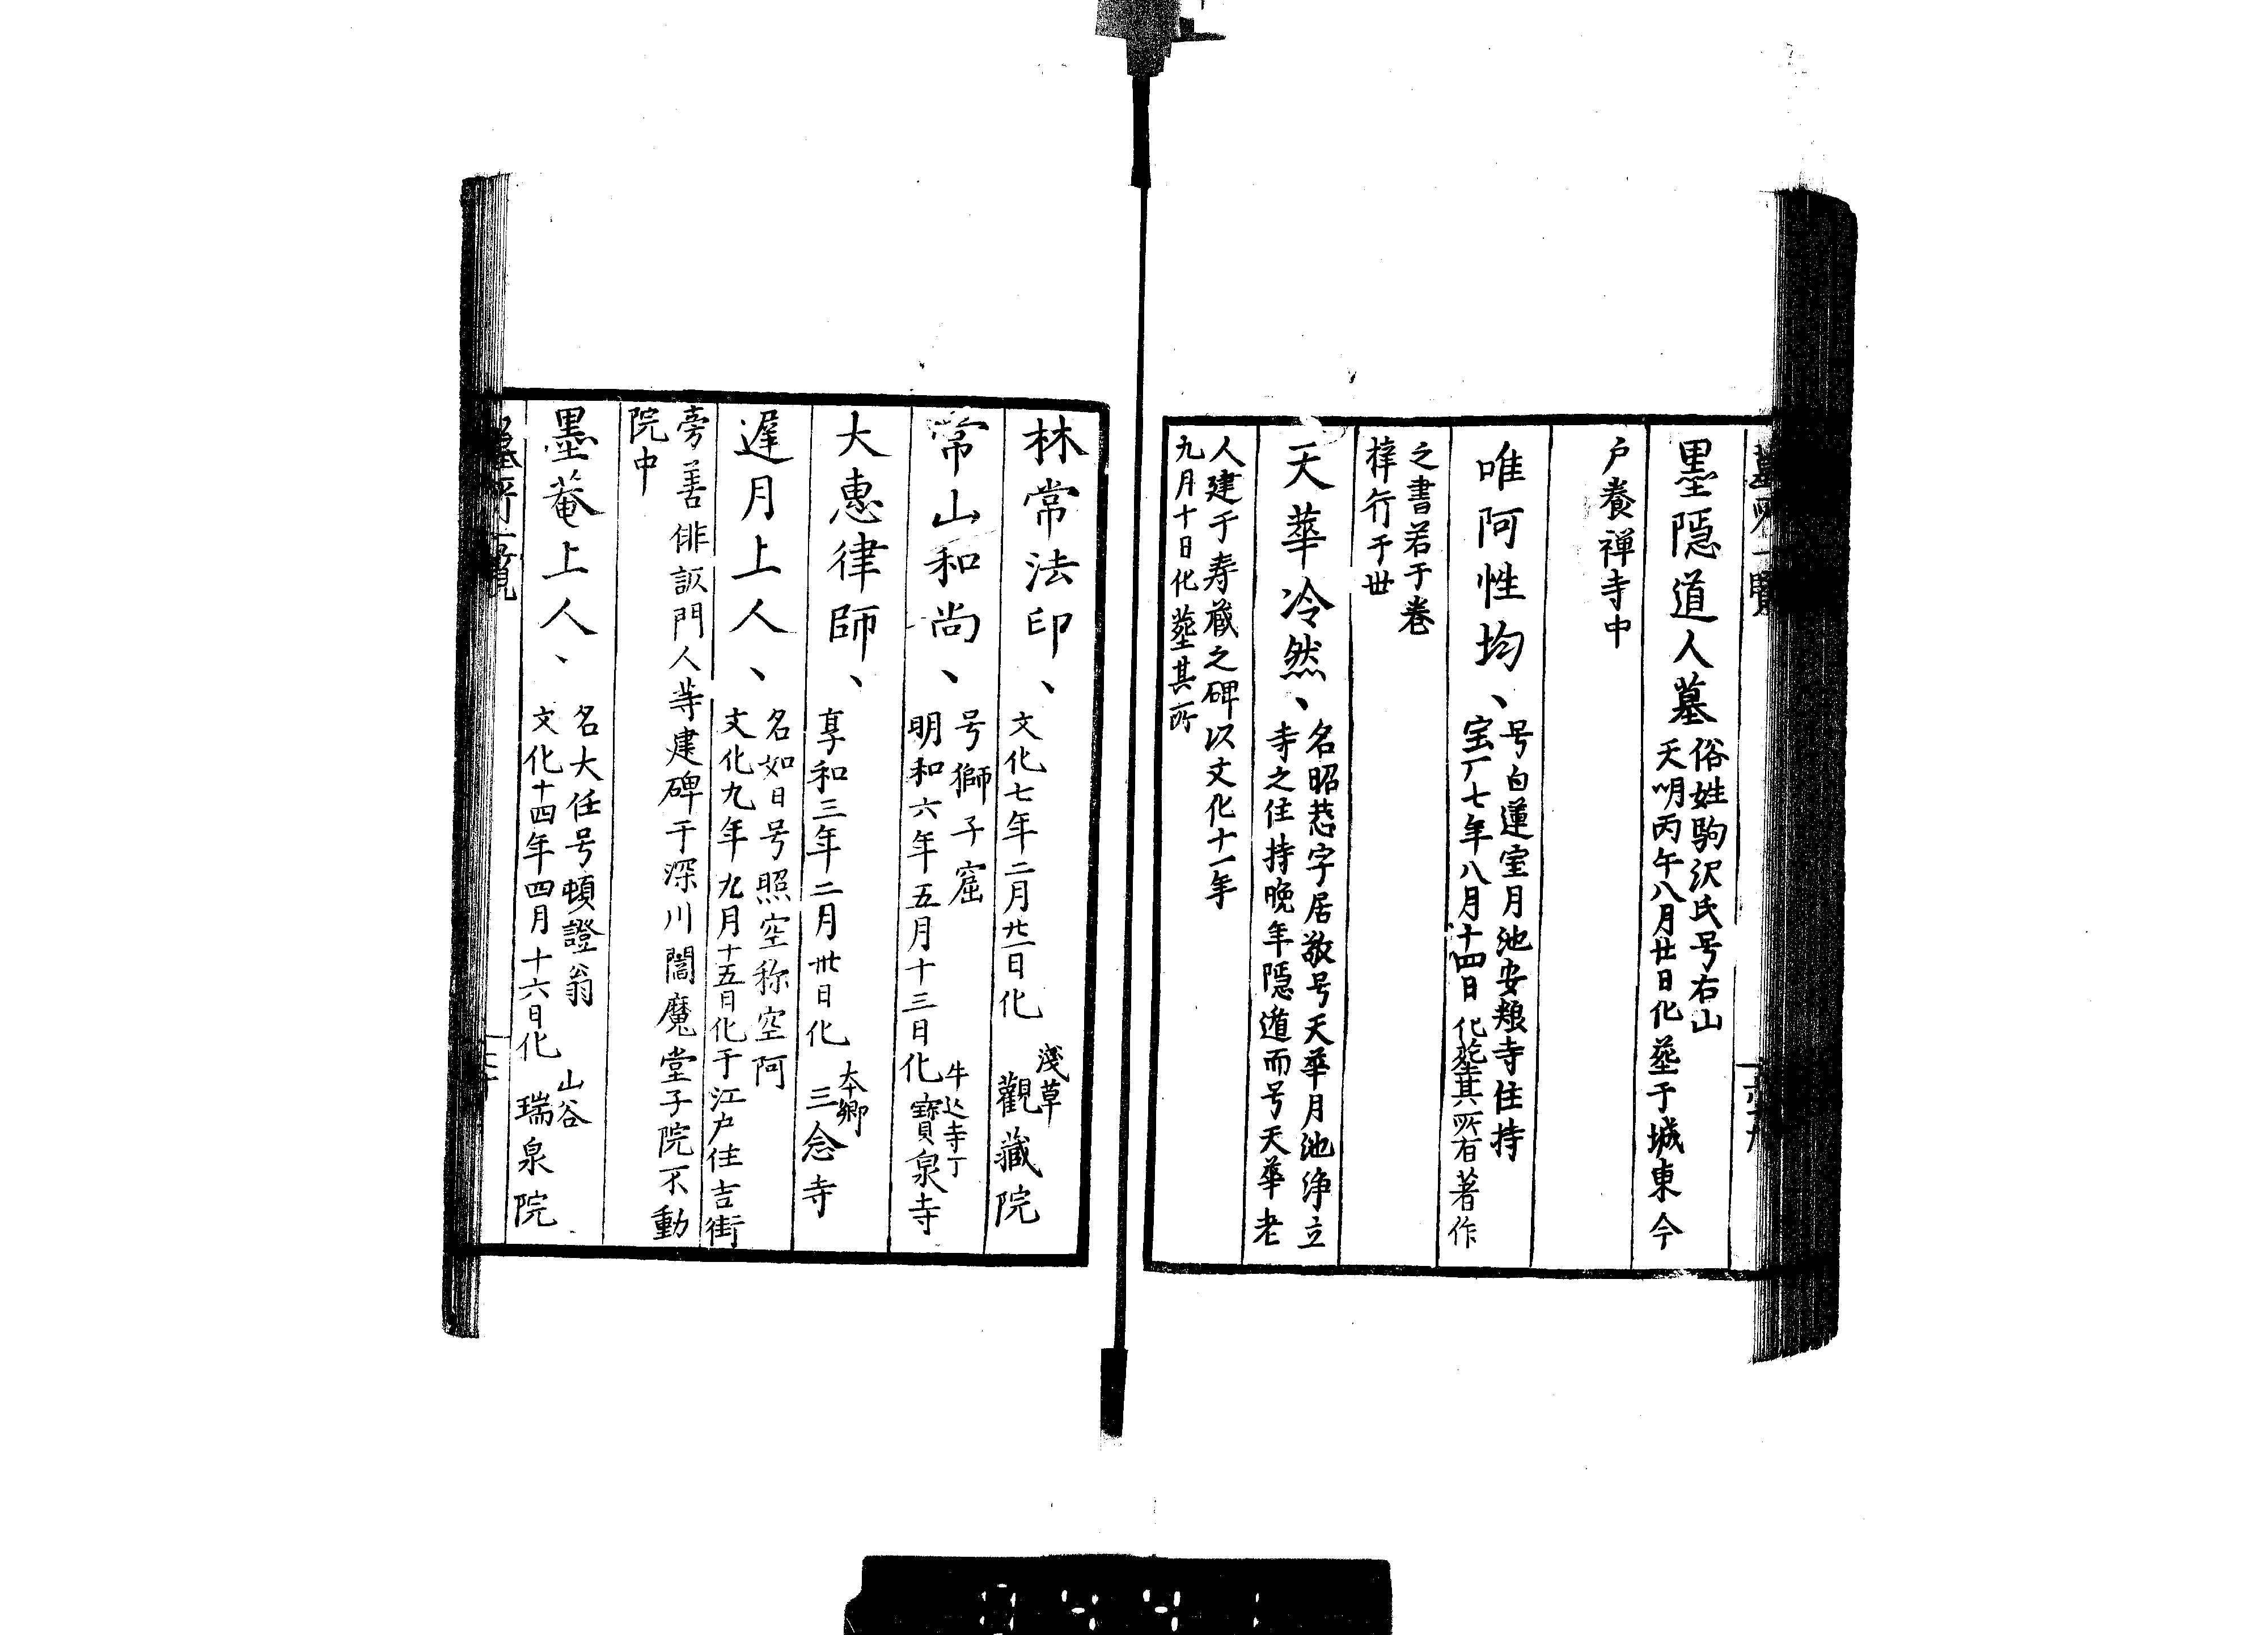 墨隠道人墓
俗姓駒沢氏号右山
天明丙午八月廿日化葬于城東今
戸養禅寺中
唯阿性均、
号白蓮室月池安粮寺住持
宝厂七年八月十四日化葬其所有著作
之書若干巻
梓行于世
天華冷然、
名昭慈字居敬号天華月池浄立
寺之住持晩年隠遁而号天華老
人建于寿蔵之碑以文化十一年
九月十日化葬其所
林常法印、
文化七年二月廿一日化
淺草
觀藏院
常山和尚、
号獅子窟
明和六年五月十三日化
牛込寺丁
寶泉寺
大惠律師、
享和三年二月卅日化
本郷
三念寺
遅月上人、
名如日号照空称空阿
文化九年九月十五日化于江戸住吉街
旁善俳諧門人等建碑于深川閻魔堂子院不動
院中
墨菴上人、
名大任号頓證翁
文化十四年四月十六日化
山谷
瑞泉院